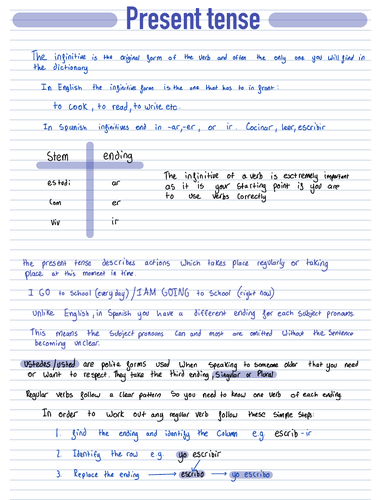 Present tense
The infinitive is the original form of the verb and often the only one you will find in
the dictionary
In English the infinitive form is the one that has to in front:
to cook, to read, to write etc.
In Spanish infinitives end in -ar, -er, or ir. Cocinar, leer, escribir
Stem ending
estudi ar
Com er
Viv ir
The infinitive of a verb is exctremely important
as it is your starting point if you are
to use verbs correctly
the present tense describes actions which takes place regularly or taking
place at this moment in time.
I GO to School (every day) / I AM GOING to School (right now)
Unlike English, in Spanish you have a different ending for each subject pronouns
This means the Subject pronouns Can and most are omitted without the Sentence
becoming unclear.
Ustedes/usted are polite forms used when speaking to someone older that you need
or want to respect. They take the third ending, Singular or Plural
Regular verbs follow a clear pattern So you need to know one verb of each ending
In order to work out any regular verb follow these Simple Steps:
1. find the ending and identify the Column e.g. escrib-ir
2. Identify the row e.g. yo escribir
3. Replace the ending escribo yo escribo